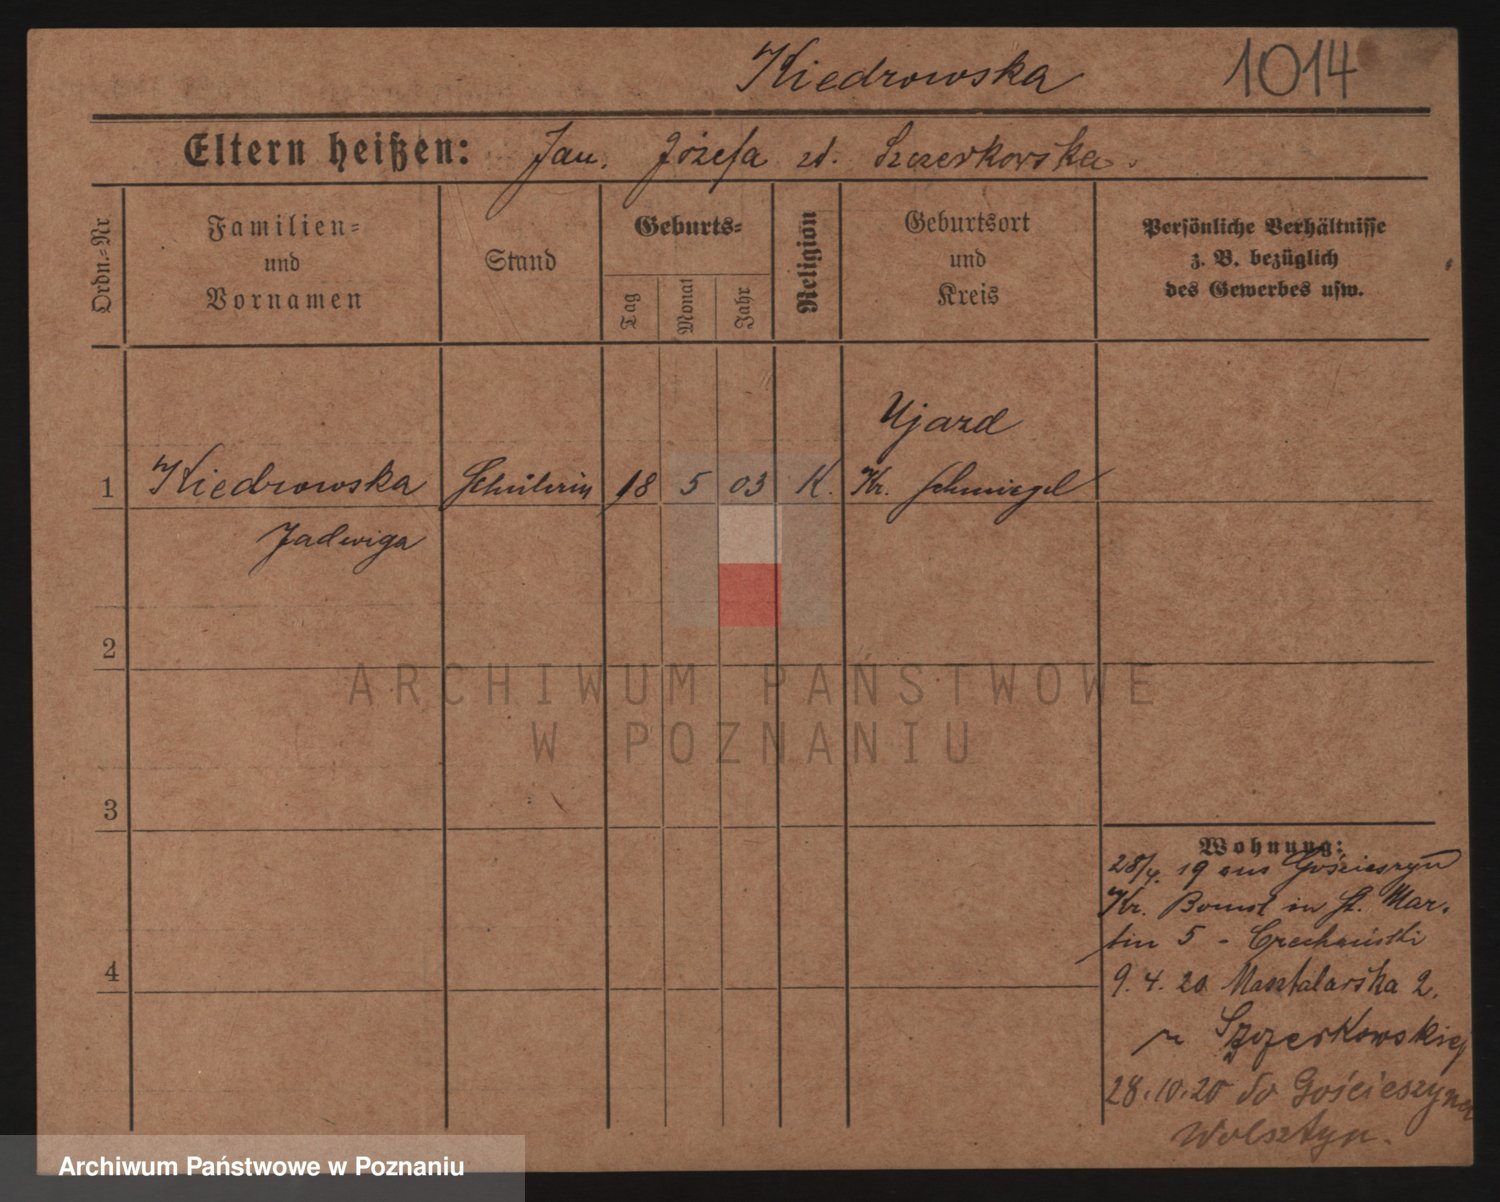 Kiedrowska 1014
Eltern heißen: Jan. Józefa zd. Szczerkowska.
Ordn.-Nr
Familien-
und
Vornamen
Stand
Geburts-
Tag
Monat
Jahr
Religion
Geburtsort
und
Kreis
Persönliche Verhältnisse
z. B. bezüglich
des Gewerbes usw.
Ujazd
1 Kiedrowska Schülerin 18 5 03 K. Kr. Schmiegel
Jadwiga
2
ARCHIWUM PAŃSTWOWE
W POZNANIU
3
Wohnung:
28/4. 19 aus Gościeszyn
Kr. Bomst in St. Mar-
4
tin 5 -
9. 4. 20 Masztalarska 2.
Szczerkowskiej
28.10.20 do Gościeszyna
Wolsztyn.
Archiwum Państwowe w Poznaniu